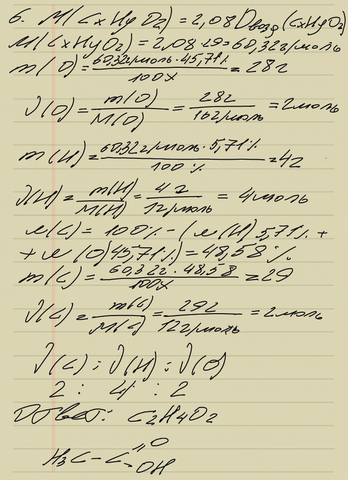 6. M(CxHyO2) = 2,08 Dвозд (CxHyO2)
M(CxHyO2) = 2,08·29 = 60,32 г/моль
m(O) = 60,32 г/моль · 45,71% / 100% = 28 г
ν(O) = m(O) / M(O) = 28 г / 16 г/моль = 2 моль
m(H) = 60,32 г/моль · 5,71% / 100% = 4 г
ν(H) = m(H) / M(H) = 4 г / 12 г/моль = 4 моль
ω(C) = 100% - (ω(H) 5,71% +
+ ω(O) 45,71%) = 48,58%
m(C) = 60,32 г · 48,58 / 100% = 29
ν(C) = m(C) / M(C) = 29 г / 12 г/моль = 2 моль
ν(C) : ν(H) : ν(O)
2 : 4 : 2
Ответ: C2H4O2
H3C - C =O
OH